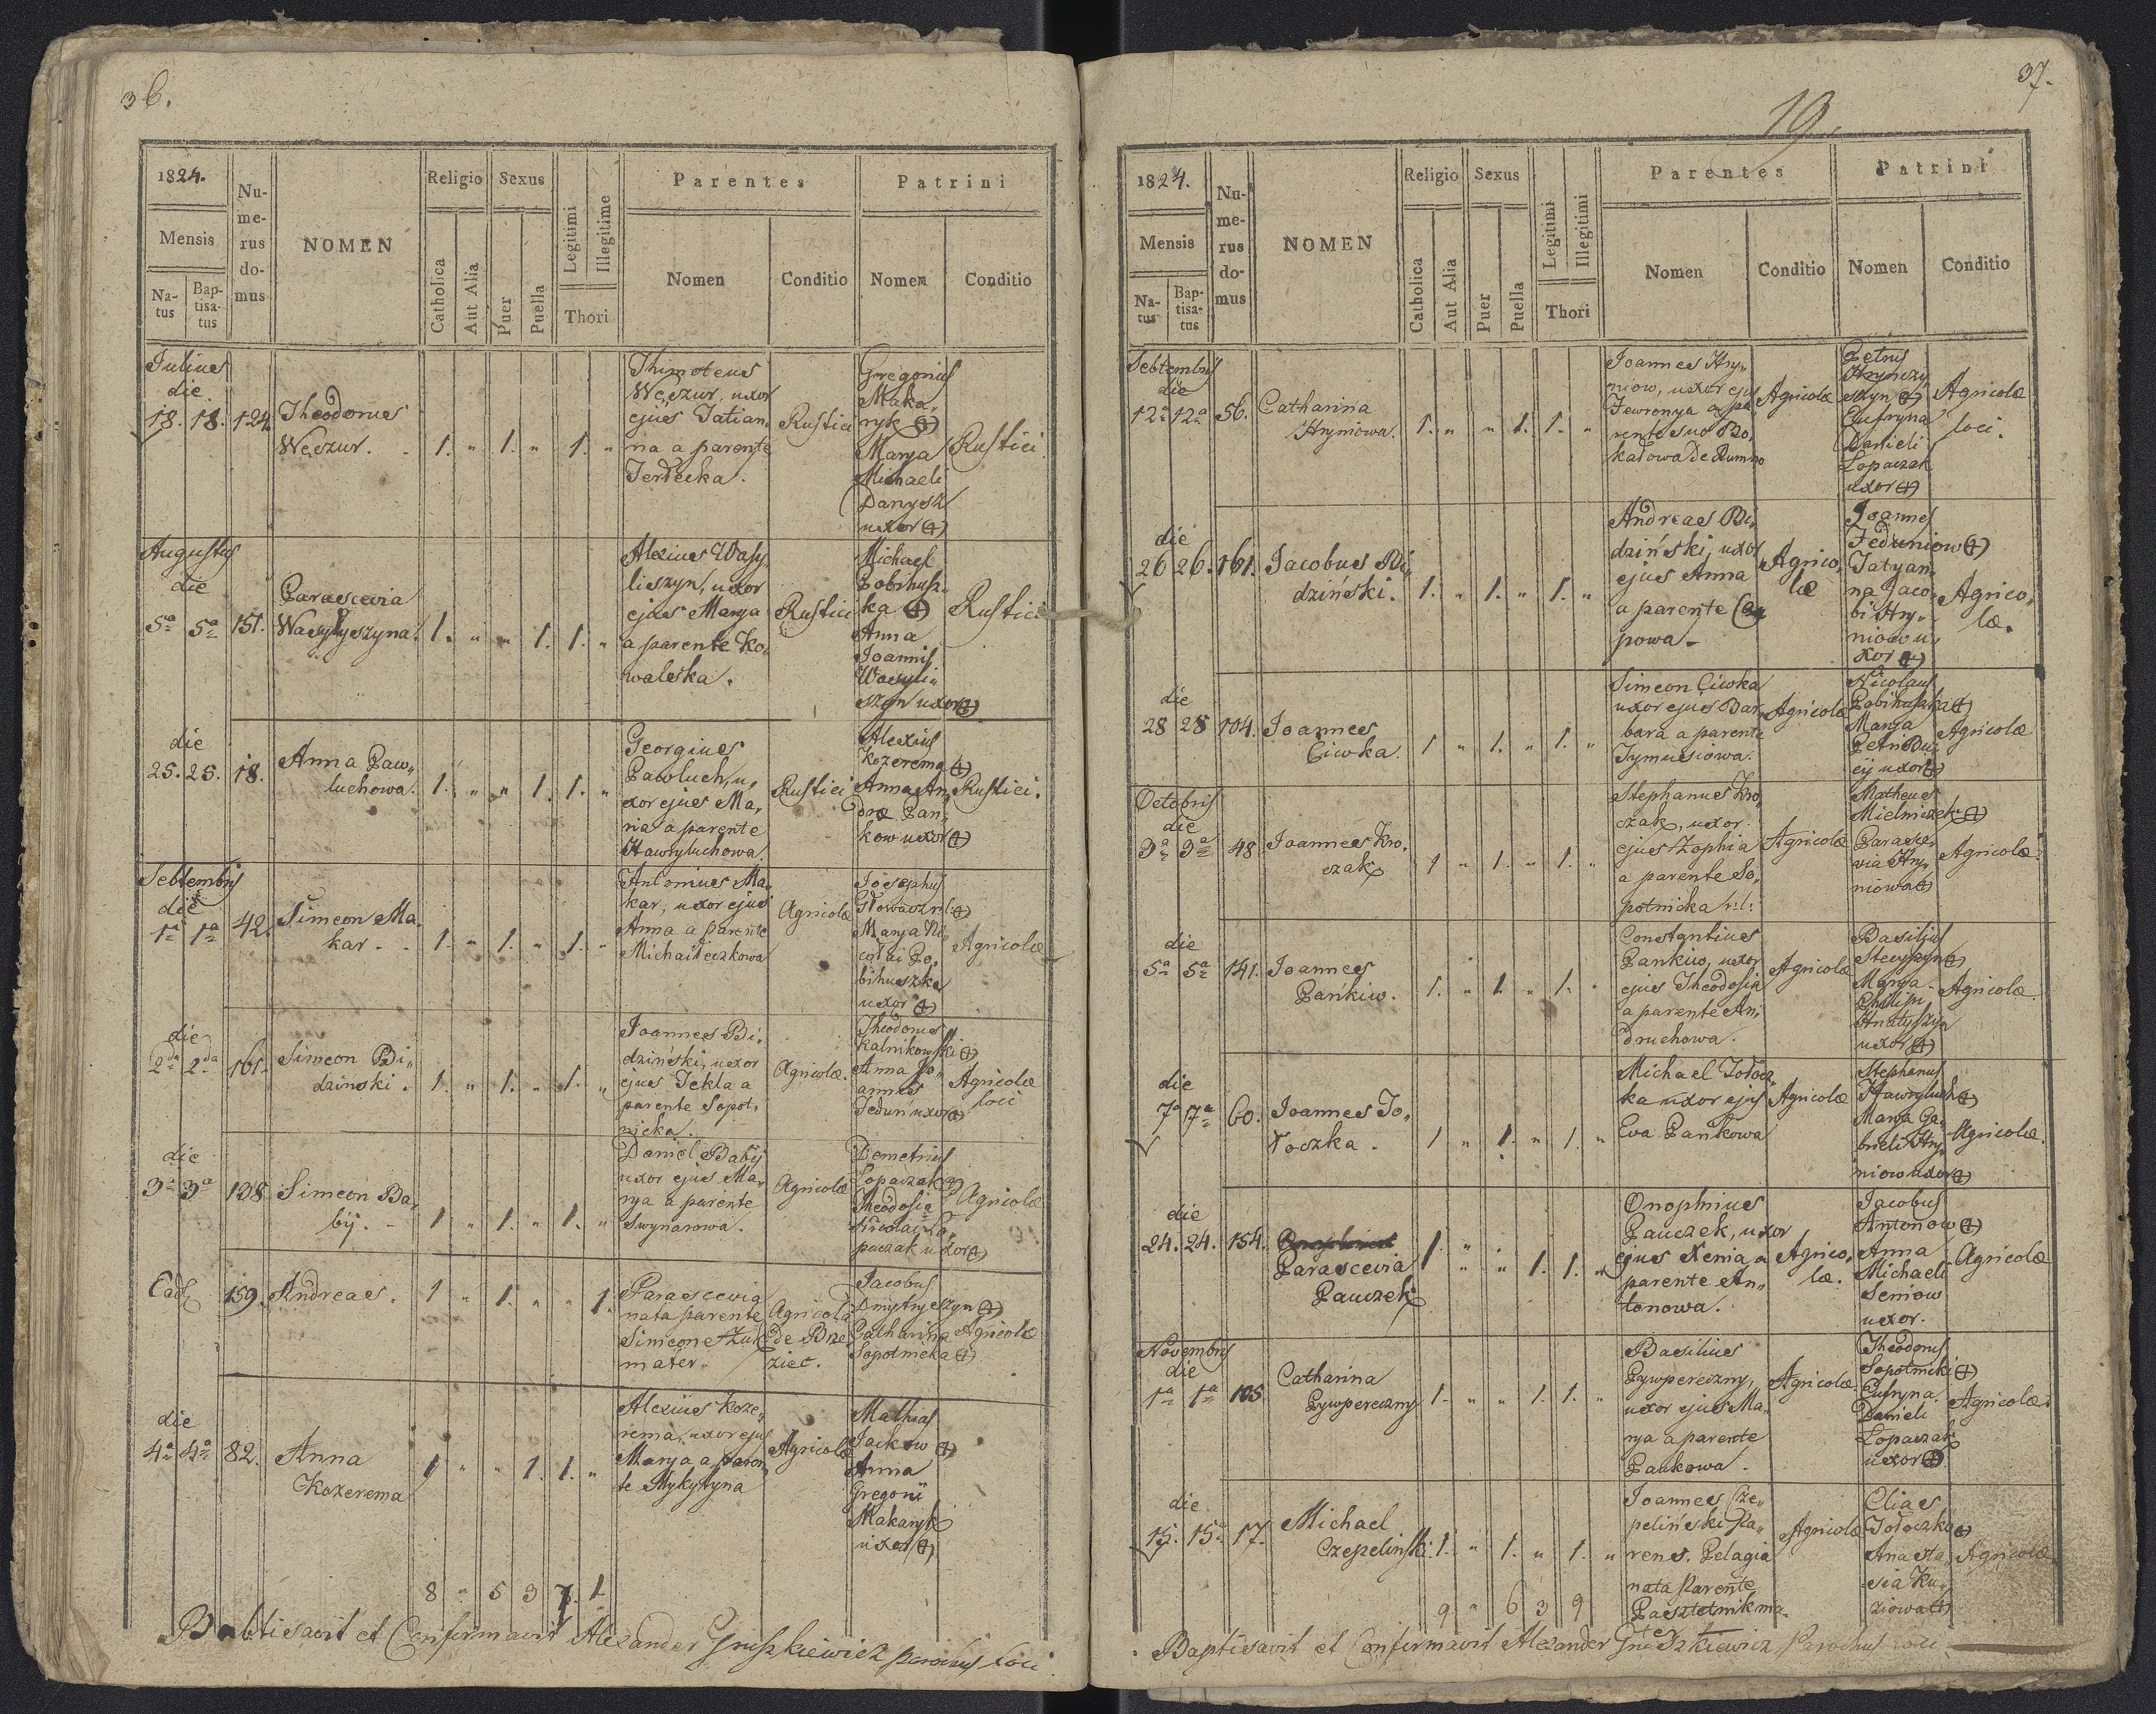 36.
1824.
Mensis
Na-
tus
Bap-
tisa-
tus
Nu-
me-
rus
do-
mus
NOMEN
Religio
Catholica
Aut Alia
Sexus
Puer
Puella
Legitimi
Illegitime
Thori
Parentes
Nomen
Conditio
Patrini
Nomen
Conditio
Julius
die
18. 18. 124.
Theodorus
Węszur.
1. " 1. " 1. "
Thimoteus
Węszur, uxor
ejus Tatian,
na a parente
Rustici
Gregorius
Maka,,
ryk (+)
Marya
Michaeli
Danysz
uxor (+)
Rustici
Augustus
die
5a 5a 151.
Parascevia
Wasylyszyna.
1. " " 1. 1. "
Alexius Wasy,
liszyn, uxor
ejus Marya
a parente Ko,,
walska.
Rustici
Michael
Pobihusz,
ka (+)
Anna
Joannis
Wasyli,,
szyn uxor (+)
Rustici
die
25. 25. 18.
Anna Paw,,
luchowa.
1. " " 1. 1. "
Georgius
Pawluch, u,
xor ejus Ma,
ria a parente
Hawryluchowa.
Rustici
Alexius
Kozerema (+)
Anna An,
dræ Pan,
kow uxor (+)
Rustici.
Septembris
die
1a 1a 42.
Simeon Ma,
kar.
1. " 1. " 1. "
Antonius Ma,
kar, uxor ejus
Anna a parente
Michaileczkowa
Agricolæ
Josephus
Marya Ni,
colai Po,
bihuszka
uxor (+)
Agricolæ
die
2da 2da 161.
Simeon Bi,,
dzinski.
1. " 1. " 1. "
Joannes Bi,
dziński, uxor
ejus Tekla a
parente Sopot,
nicka.
Agricolæ.
Theodorus
Kalnikowski (+)
Anna Jo,
annis
Fedun uxor (+)
Agricolæ
loci
die
3a 3a 138.
Simeon Ba,
bij.
1 " 1. " 1. "
Daniel Babij
uxor ejus Ma,
rya a parente
Swynarowa.
Agricolæ
Demetrius
Lopaczak (+)
Theodosia
Nicolai Lo,
paczak uxor (+)
Agricolæ
Ead.
159.
Andreas.
1 " 1. " " 1.
Parascevia
nata parente
Simeone
mater.
Agricola
de Brze,
ziec.
Jacobus
Dmytryszyn (+)
Catharina
Sopotnicka (+)
Agricolæ
die
4a 4a 82.
Anna
Kozerema
1 " " 1. 1. "
Alexius Koze,,
rema, uxor ejus
Marya a paren,
te Mykytyna
Agricolæ
Mathias
Jackow (+)
Anna
Gregorii
Makaryk
uxor (+)
8 " 5 3 7. 1
Babtisavit et Confirmavit Alexander Gruszkiewicz parochus loci.
37.
19.
1824.
Mensis
Na-
tus
Bap-
tisa-
tus
Nu-
me-
rus
do-
mus
NOMEN
Religio
Catholica
Aut Alia
Sexus
Puer
Puella
Legitimi
Illegitimi
Thori
Parentes
Nomen
Conditio
Patrini
Nomen
Conditio
Septembris
die
12a 12a 56.
Catharina
Hryniowa.
1. " " 1. 1. "
Joannes Hry,,
niow, uxor ejus
Fewronya a pa,
rente suo Bo,
kałowa de Rumno
Agricolæ
Petrus
Hrynczy,
szyn (+)
Eufryna
Danieli
Lopaczak
uxor (+)
Agricolæ
loci.
die
26 26. 161.
Jacobus Bi,,
dziński.
1. " 1. " 1. "
Andreas Bi,,
dziński, uxor
ejus Anna
a parente
powa.
Agrico,
læ
Joannes
Feduniow (+)
Tatyan,
na Jaco,
bi Hry,,
niow u,
xor (+)
Agrico,,
læ.
die
28 28 104.
Joannes
Ciwka.
1 " 1. " 1. "
Simeon Ciwka
uxor ejus Bar,
bara a parente
Tymusiowa.
Agricolæ
Nicolaus
Pobihuszka (+)
Marya
Petri
uxor (+)
Agricolæ
Octobris
die
3a 3a 48
Joannes Kro,
czak
1 " 1. " 1. "
Stephanus Kro,
czak, uxor
ejus Zophia
a parente So,,
potnicka
Agricolæ
Matheus
Mielniczek (+)
Parasce,
via Hry,
niowa (+)
Agricolæ.
die
5a 5a 141.
Joannes
Pańkiw.
1. " 1. " 1. "
Constantius
Pankiw, uxor
ejus Theodosia
a parente An,
druchowa.
Agricolæ
Basilius
Marya
Philipi
Hnatyszyn
uxor (+)
Agricolæ.
die
7a 7a 60.
Joannes To,,
łoczka.
1 " 1. " 1. "
Michael Tołocz,
ka uxor ejus
Eva Pankowa
Agricolæ
Stephanus
Hawryluch (+)
Marya Ga,
brieli Hry,
niow uxor (+)
Agricolæ.
die
24. 24. 154.
Parascevia
Pauczek
1 " " 1. 1. "
Onophrius
Pauczek, uxor
ejus Xenia a
parente An,,
tonowa.
Agrico,
læ.
Jacobus
Antonow (+)
Anna
Michaeli
Seniow
uxor.
Agricolæ
Novembris
die
1a 1a 105
Catharina
Pywpereczny
1. " " 1. 1. "
Basilius
Pywpereczny,
uxor ejus Ma,
rya a parente
Pankowa.
Agricolæ.
Theodorus
Sopotnicki (+)
Eufryna
Danieli
Lopaczak
uxor (+)
Agricolæ.
die
15. 15a 17.
Michael
Czepelinski.
1. " 1. " 1. "
Joannes Cze,,
peliński Pa,,
rens. Pelagia
nata Parente
ma,
ter
Agricolæ
Elias
Tołoczka (+)
Anasta,
sia Ku,,
ziowa (+)
Agricolæ
9 " 6 3 9
Baptisavit et Confirmavit Alexander Gruszkiewicz Parochus loci